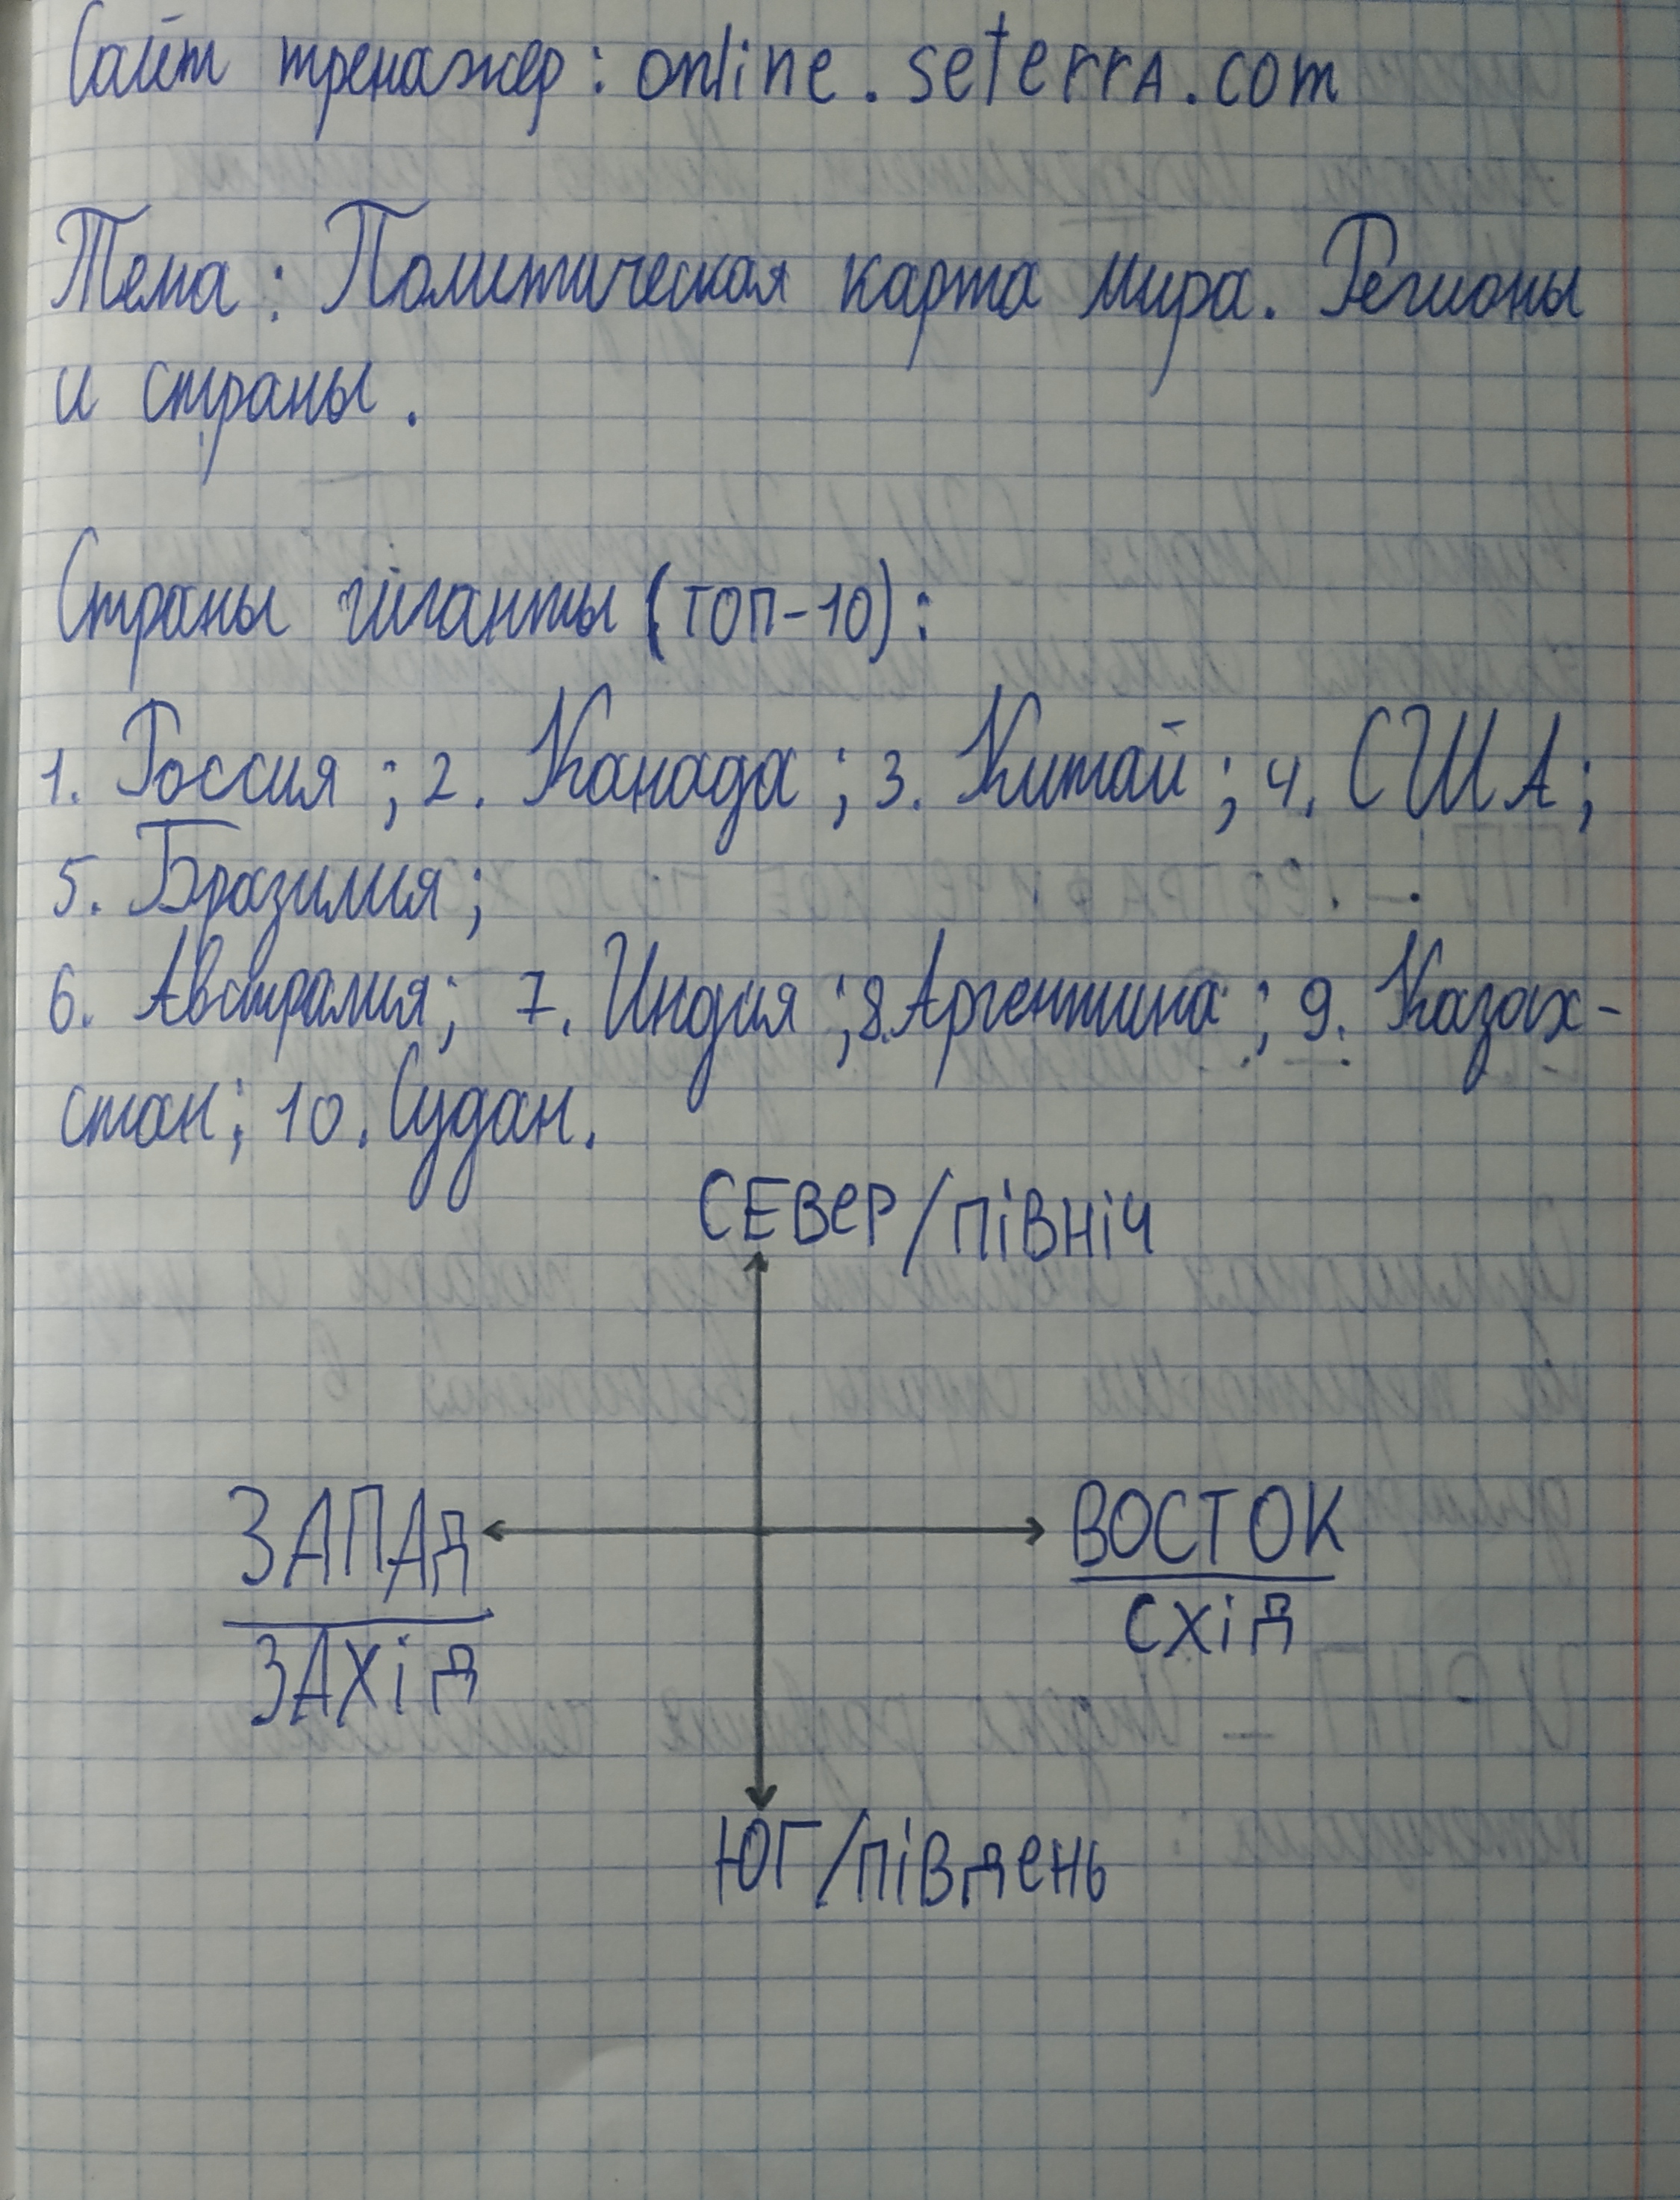 Сайт тренажер: online.seterra.com
Тема: Политическая карта мира. Регионы
и страны.
Страны гиганты (ТОП-10):
1. Россия; 2. Канада; 3. Китай; 4. США;
5. Бразилия;
6. Австралия; 7. Индия; 8. Аргентина; 9. Казах-
стан; 10. Судан.
СЕВЕР/ПІВНІЧ
ЗАПАД
ЗАХІД
ВОСТОК
СХІД
ЮГ/ПІВДЕНЬ